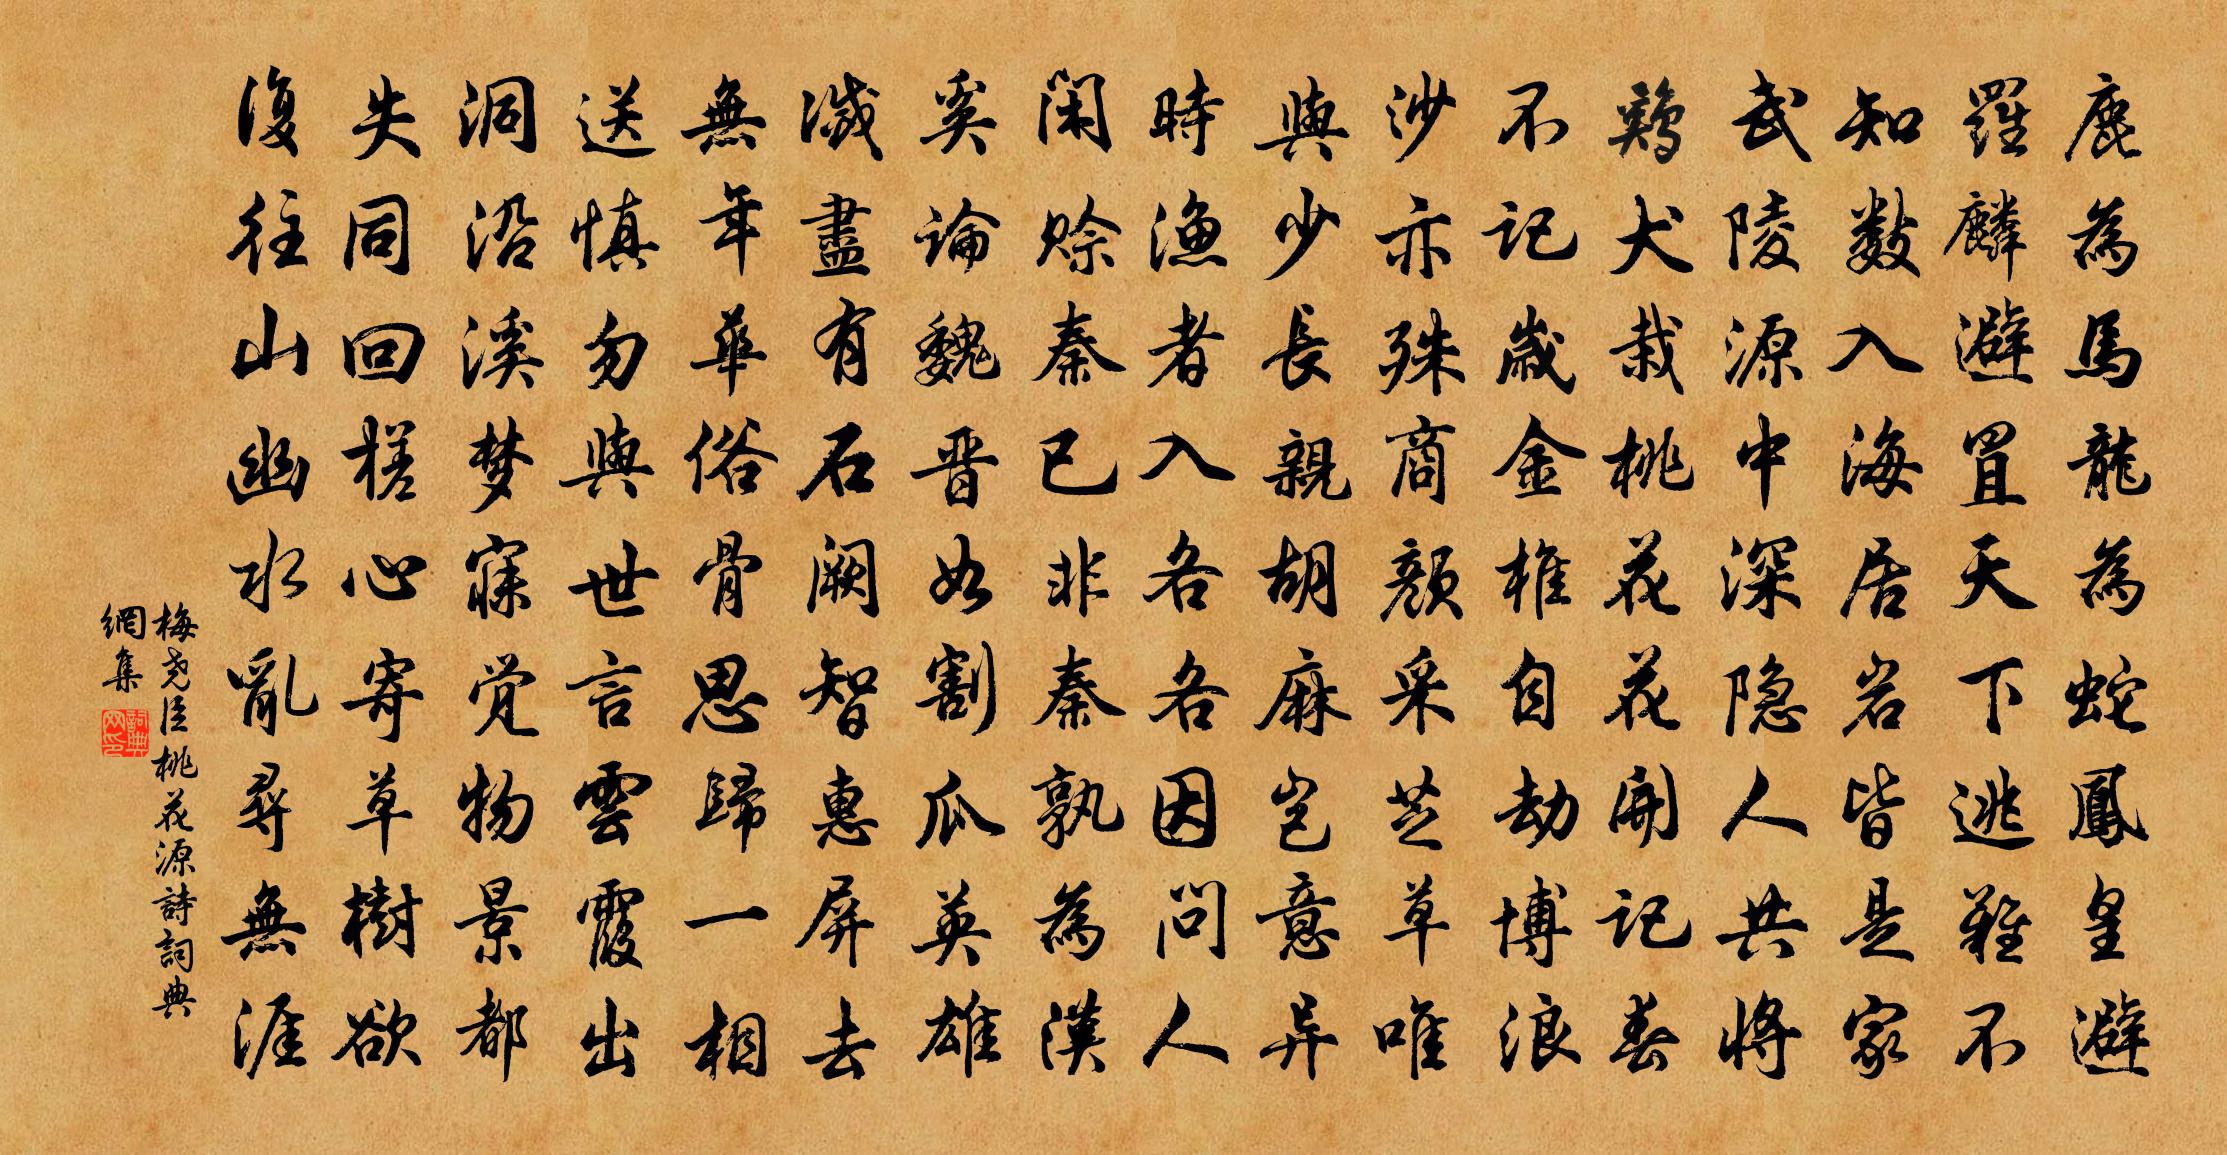 鹿為馬龍為蛇鳳皇避
羅麟避罝天下逃難不
知數入海居岩皆是家
武陵源中深隐人共將
鷄犬栽桃花花開記春
不記歲金椎自劫博浪
沙亦殊商顏采芝草唯
與少長親胡麻岂意异
時漁者入各各因問人
閑賒秦已非秦孰為漢
奚論魏晋如割瓜英雄
滅盡有石阙智惠屏去
無年華俗骨思歸一相
送慎勿與世言雲霞出
洞沿溪梦寐觉物景都
失同回槎心寄草樹欲
復往山幽水亂尋無涯
梅尧臣桃花源詩詞典
網集
詞典
网印